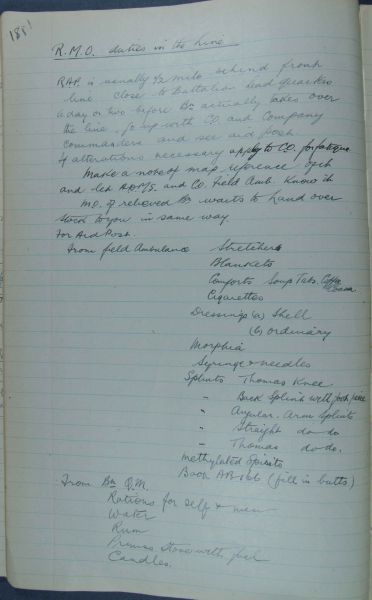 188
R.M.O. duties in the Line
R.A.P. is usually ½ mile behind front
line close to Battalion head quarters
a day or two before Bn actually takes over
the line, go up with CO. and Company
commanders and see aid post.
If alterations necessary apply to C.O. for fatigue
Make a note of map reference of it
and let ADMS. and CO. field Amb. know it
M.O. of relieved Bn wants to hand over
stock to you in same way
For Aid Post.
From field Ambulance Stretchers
Blankets
Comforts Soup Tabs. Coffee Cocoa
Cigarettes
Dressings (a) Shell
(b) ordinary
Morphia
Syringe & needles
Splints Thomas Knee
" Back Splint with foot piece
" Angular Arm Splints
" Straight do do
" Thomas do do.
Methylated Spirits
Book AB 166 (fill in butts)
From Bn Q.M.
Rations for self & men
Water
Rum
Primus Stove with fuel
Candles.